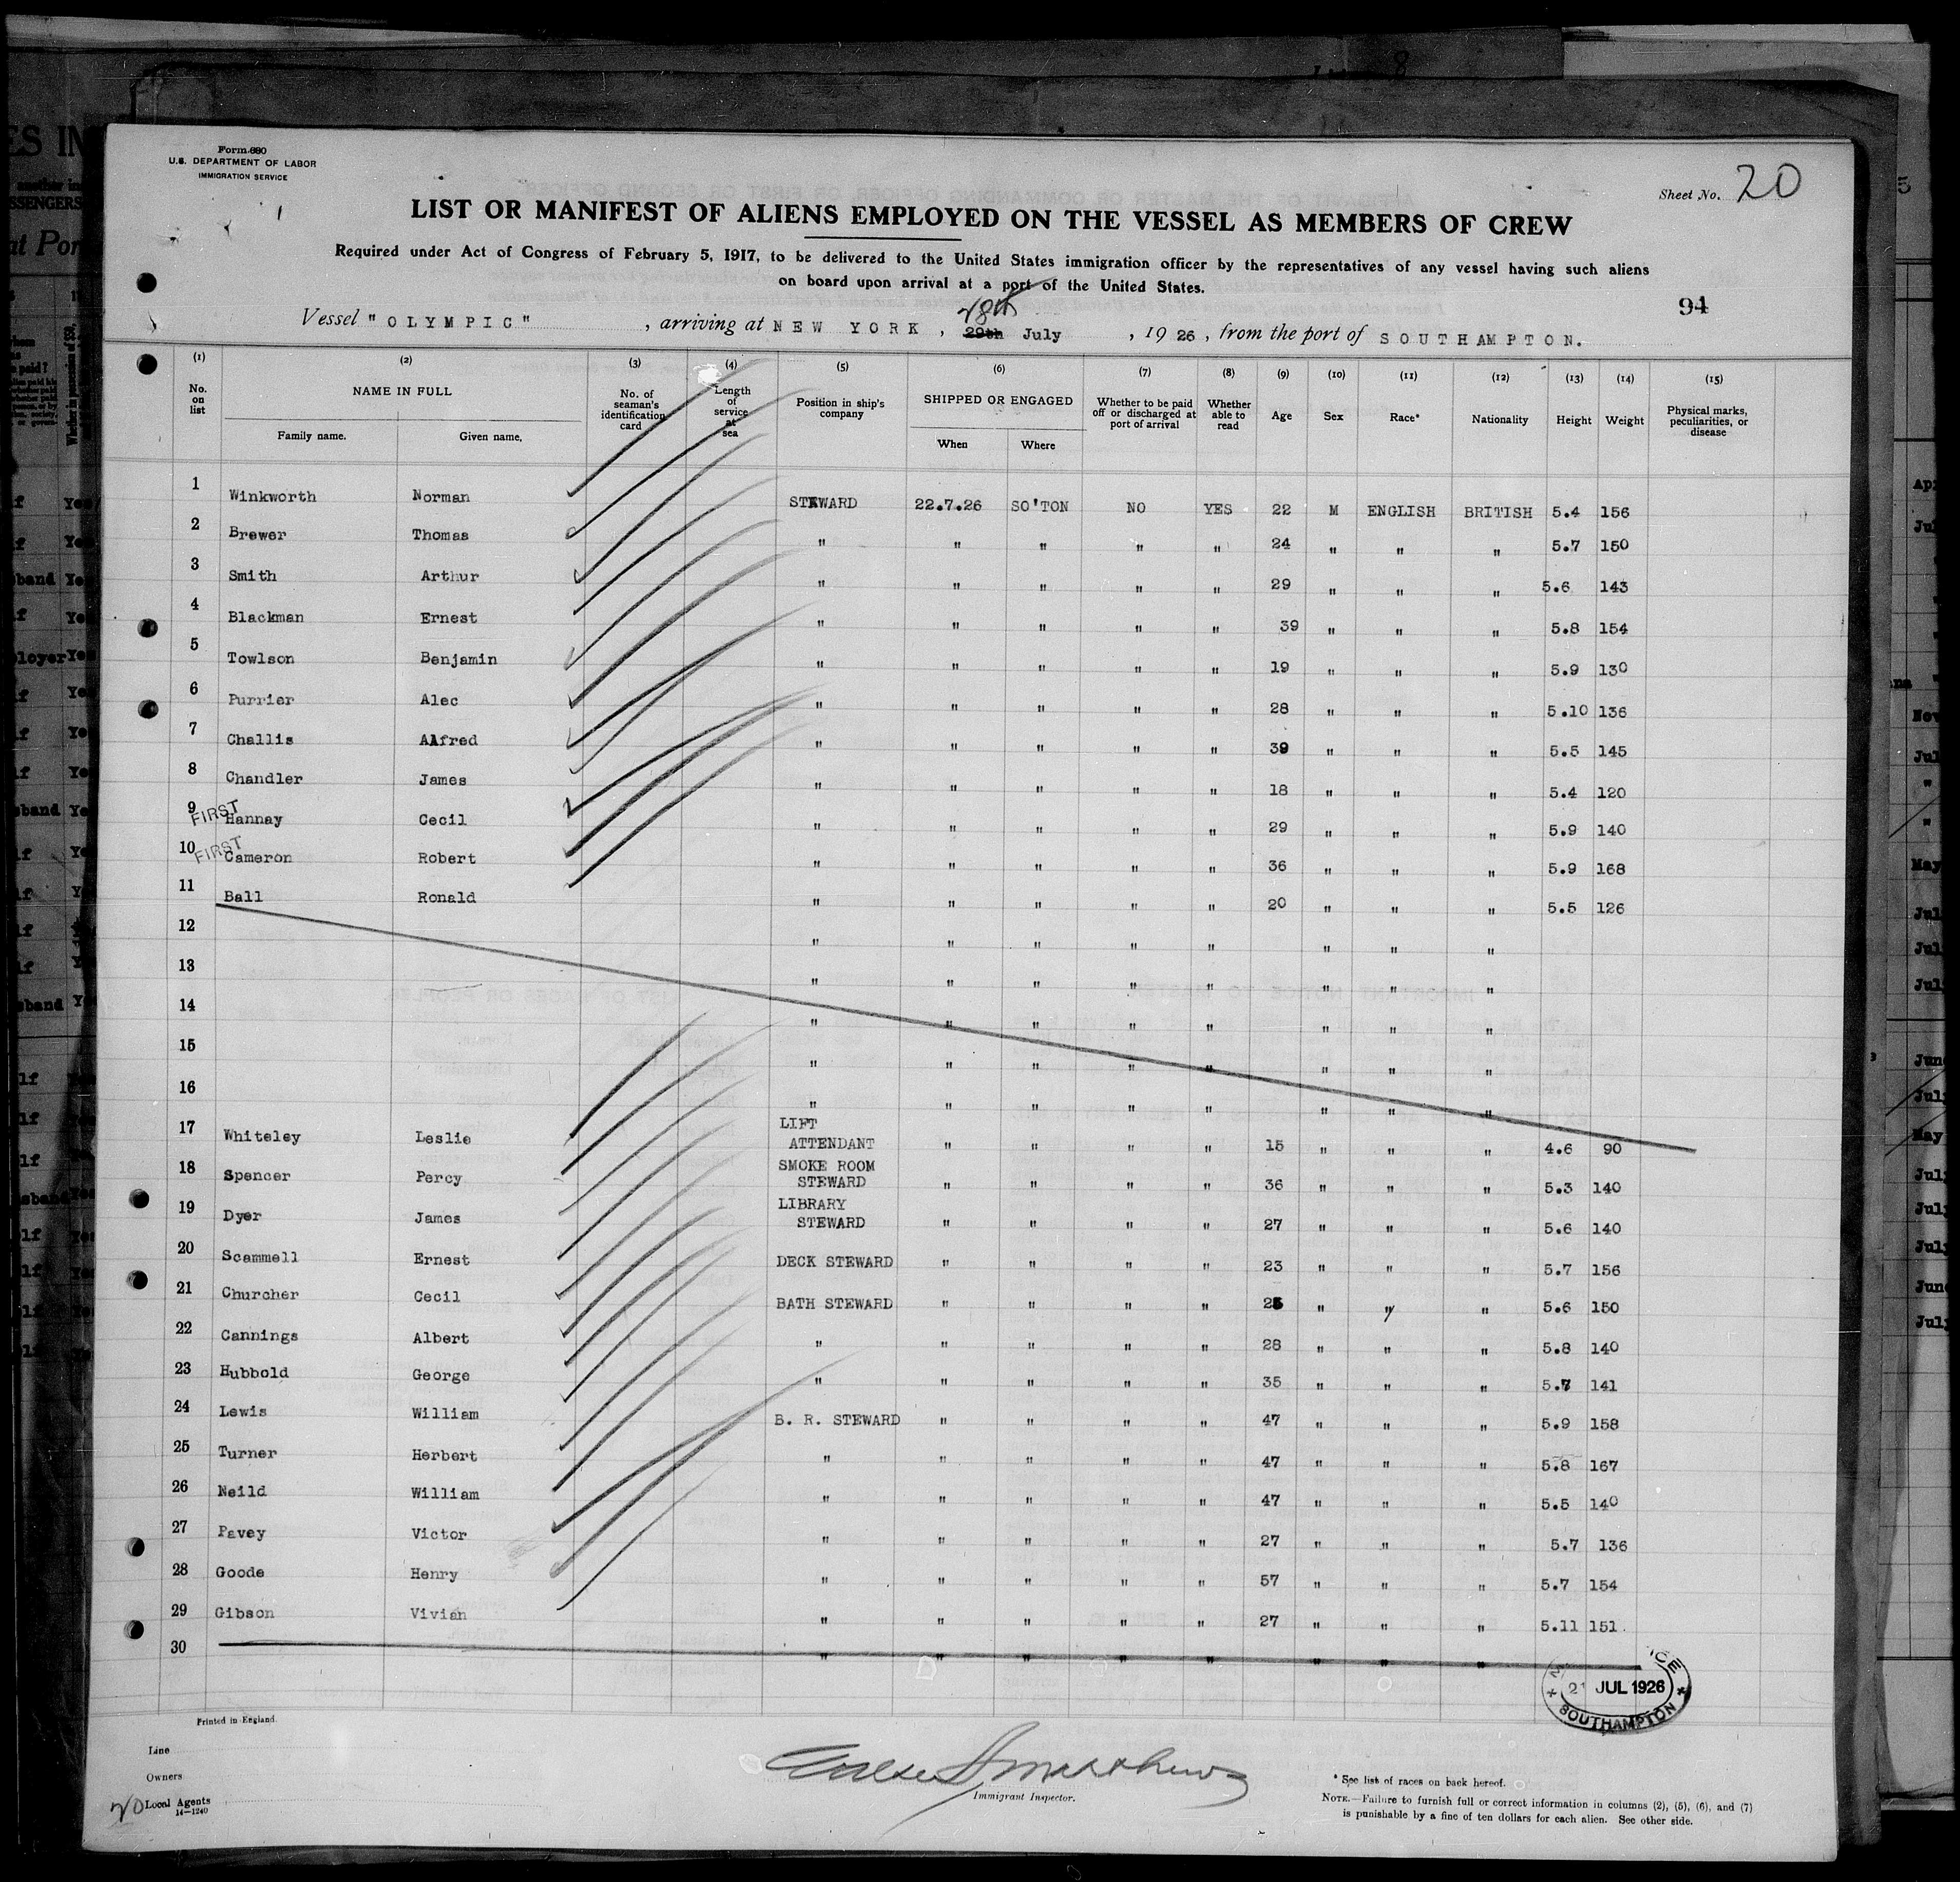 Form 680
U.S. DEPARTMENT OF LABOR
IMMIGRATION SERVICE
Sheet No. 20
LIST OR MANIFEST OF ALIENS EMPLOYED ON THE VESSEL AS MEMBERS OF CREW
Required under Act of Congress of February 5, 1917, to be delivered to the United States immigration officer by the representatives of any vessel having such aliens
on board upon arrival at a port of the United States.
94
28th
Vessel "OLYMPIC" , arriving at NEW YORK , 29th July , 19 26 , from the port of SOUTHAMPTON.
(1) (2) (3) (4) (5) (6) (7) (8) (9) (10) (11) (12) (13) (14) (15)
No. on list NAME IN FULL Family name. Given name. No. of seaman's identification card Length of service at sea Position in ship's company SHIPPED OR ENGAGED When Where Whether to be paid off or discharged at port of arrival Whether able to read Age Sex Race* Nationality Height Weight Physical marks, peculiarities, or disease
1 Winkworth Norman STEWARD 22.7.26 SO'TON NO YES 22 M ENGLISH BRITISH 5.4 156
2 Brewer Thomas " " " " " 24 " " " 5.7 150
3 Smith Arthur " " " " " 29 " " " 5.6 143
4 Blackman Ernest " " " " " 39 " " " 5.8 154
5 Towlson Benjamin " " " " " 19 " " " 5.9 130
6 Purrier Alec " " " " " 28 " " " 5.10 136
7 Challis Alfred " " " " " 39 " " " 5.5 145
8 Chandler James " " " " " 18 " " " 5.4 120
9 FIRST Hannay Cecil " " " " " 29 " " " 5.9 140
10 FIRST Cameron Robert " " " " " 36 " " " 5.9 168
11 Ball Ronald " " " " " 20 " " " 5.5 126
12 " " " " " " " "
13 " " " " " " " "
14 " " " " " " " "
15 " " " " " " " "
16 " " " " " " " "
17 Whiteley Leslie LIFT ATTENDANT " " " " 15 " " " 4.6 90
18 Spencer Percy SMOKE ROOM STEWARD " " " " 36 " " " 5.3 140
19 Dyer James LIBRARY STEWARD " " " " 27 " " " 5.6 140
20 Scammell Ernest DECK STEWARD " " " " 23 " " " 5.7 156
21 Churcher Cecil BATH STEWARD " " " " " " " 5.6 150
22 Cannings Albert " " " " " 28 " " " 5.8 140
23 Hubbold George " " " " " 35 " " " 5.7 141
24 Lewis William B. R. STEWARD " " " " 47 " " " 5.9 158
25 Turner Herbert " " " " " 47 " " " 5.8 167
26 Neild William " " " " " 47 " " " 5.5 140
27 Pavey Victor " " " " " 27 " " " 5.7 136
28 Goode Henry " " " " " 57 " " " 5.7 154
29 Gibson Vivian " " " " " 27 " " " 5.11 151
30 " " " " " " " "
21 JUL 1926
SOUTHAMPTON
Printed in England.
Line
Owners
20 Local Agents
14—1240
Immigrant Inspector.
* See list of races on back hereof.
NOTE.—Failure to furnish full or correct information in columns (2), (5), (6), and (7)
is punishable by a fine of ten dollars for each alien. See other side.